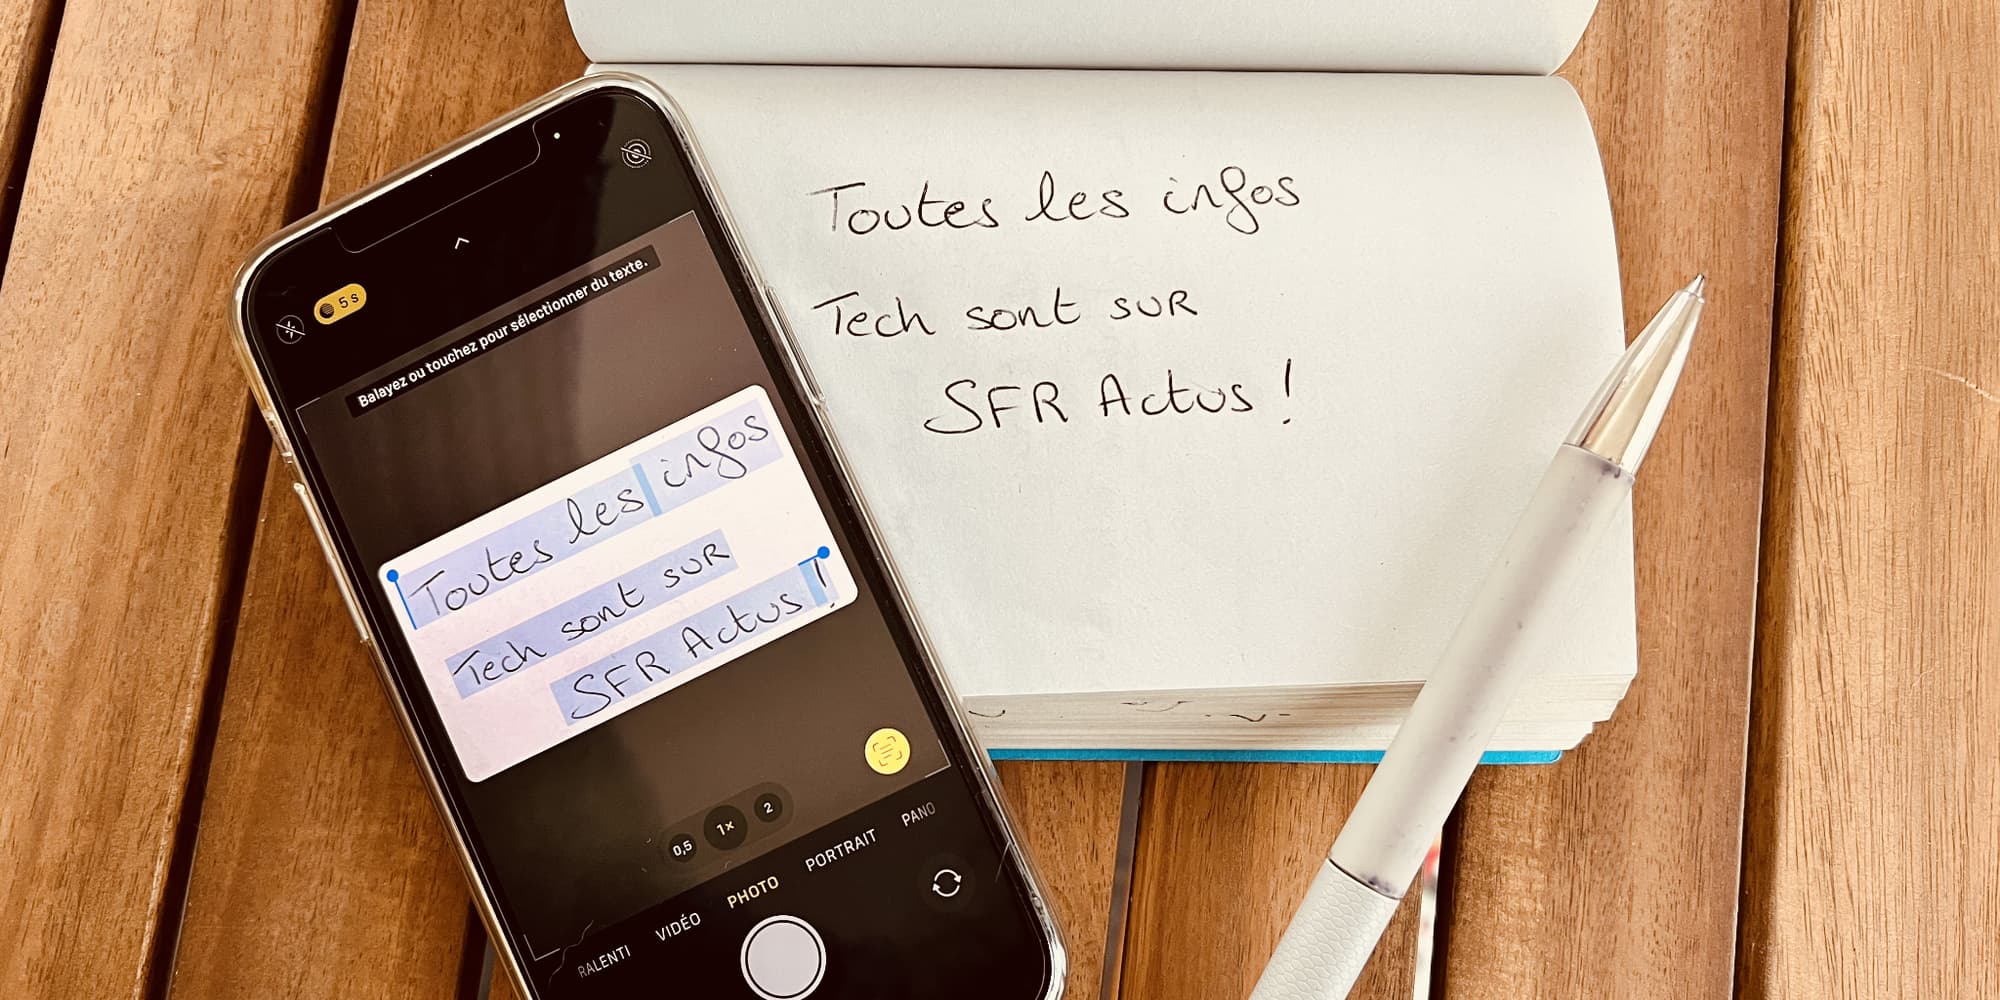 5 s
Balayez ou touchez pour sélectionner du texte.
Toutes les infos
Tech sont sur
SFR Actus !
0,5 1× 2
RALENTI VIDÉO PHOTO PORTRAIT PANO
Toutes les infos
Tech sont sur
SFR Actus !